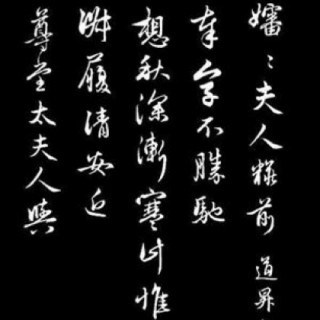 嬸〻夫人粧前 道昇
奉字不勝馳
想秋深漸寒計惟
淑履清安近
尊堂太夫人與